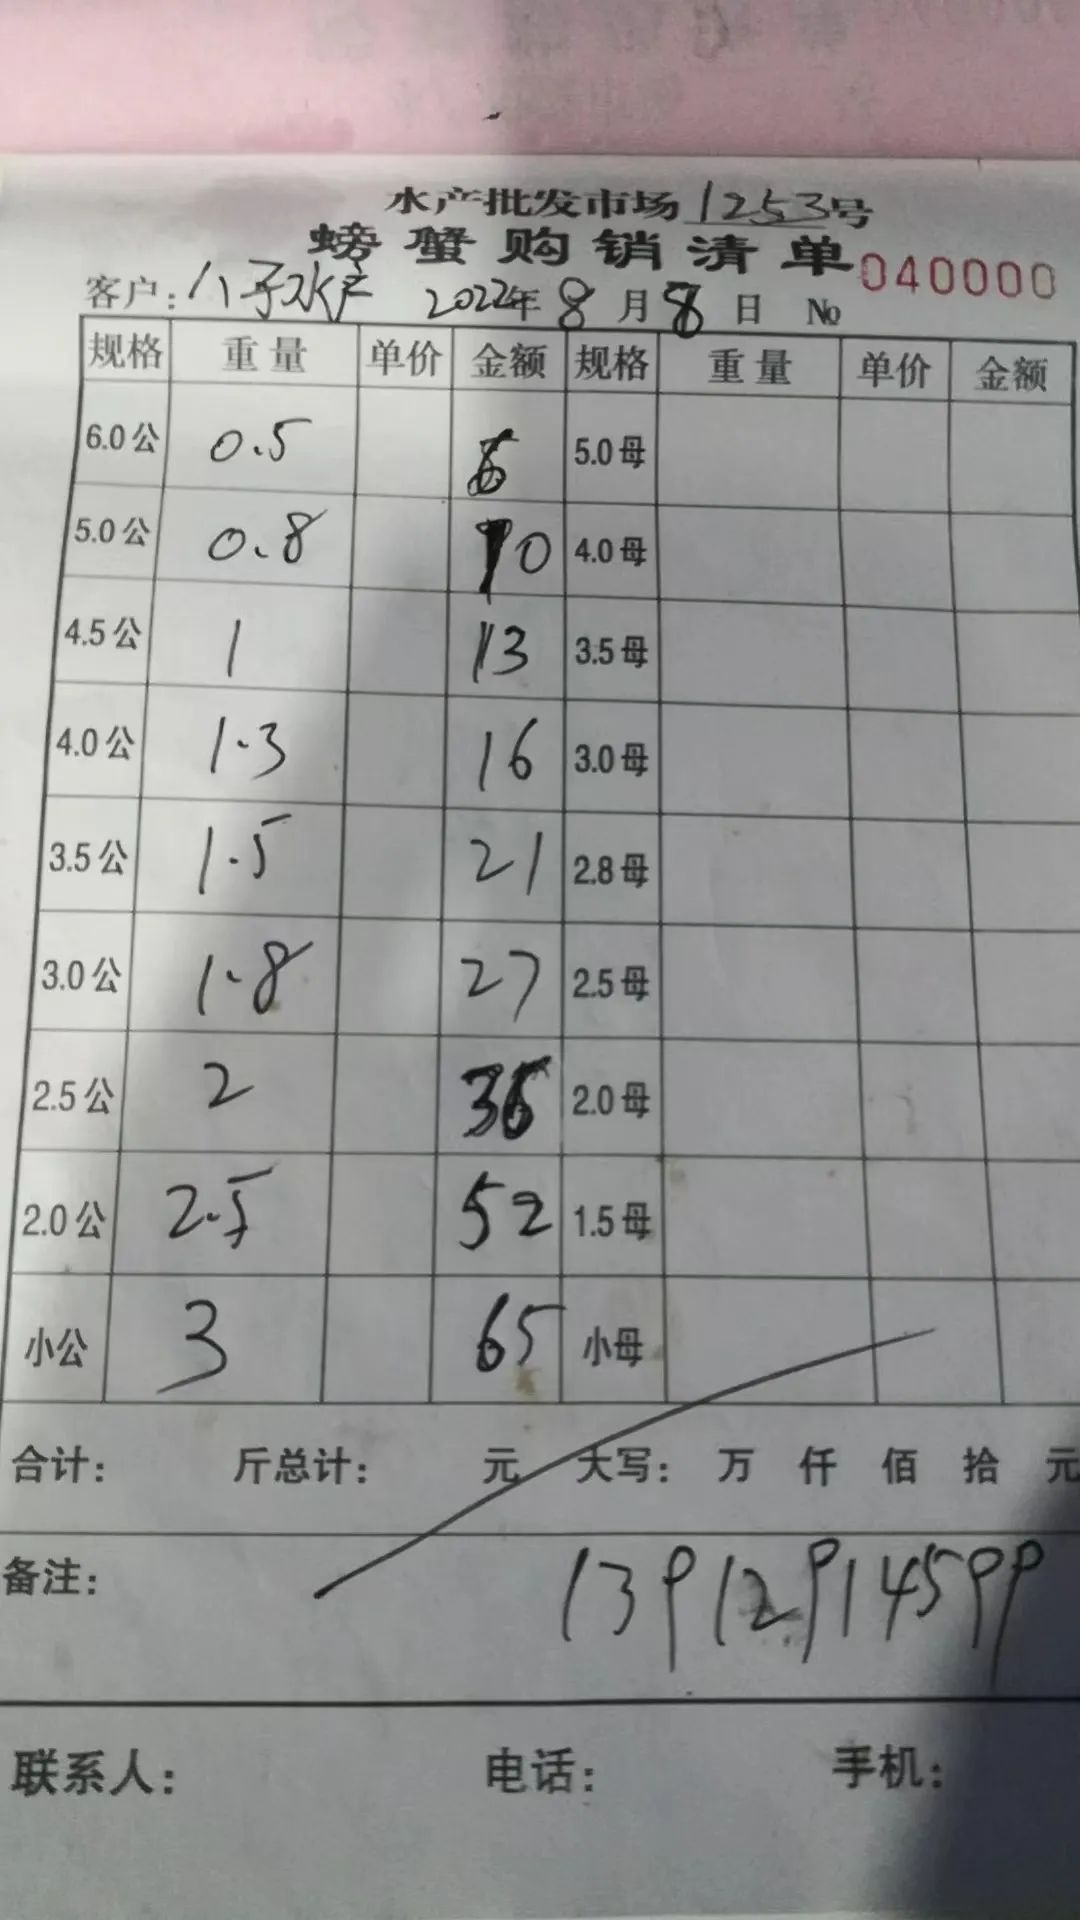 水产批发市场1253号
螃蟹购销清单 040000
客户:八子水产 2022年8月8日 №
规格 重量 单价 金额 规格 重量 单价 金额
6.0公 0.5 5.0母
5.0公 0.8 10 4.0母
4.5公 1 13 3.5母
4.0公 1.3 16 3.0母
3.5公 1.5 21 2.8母
3.0公 1.8 27 2.5母
2.5公 2 36 2.0母
2.0公 2.5 52 1.5母
小公 3 65 小母
合计: 斤总计: 元 大写: 万 仟 佰 拾 元
备注: 13912914599
联系人: 电话: 手机: